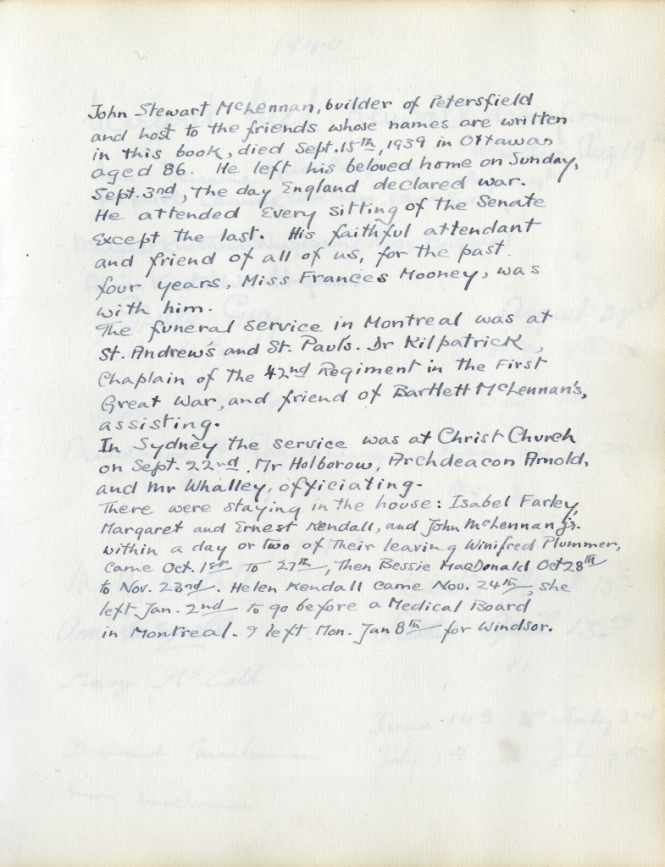 John Stewart McLennan, builder of Petersfield
and host to the friends whose names are written
in this book, died Sept. 15th, 1939 in Ottawa,
aged 86. He left his beloved home on Sunday,
Sept. 3rd, the day England declared war.
He attended Every sitting of the Senate
Except the last. His faithful attendant
and friend of all of us, for the past
four years, Miss Frances Mooney, was
with him.
The funeral service in Montreal was at
St. Andrews and St. Pauls. Dr Kilpatrick,
Chaplain of the 42nd Regiment in the First
Great War, and friend of Bartlett McLennan's,
assisting.
In Sydney the service was at Christ Church
on Sept. 22nd. Mr Holborow, Archdeacon Arnold,
and Mr Whalley, officiating.
There were staying in the house: Isabel Farley,
Margaret and Ernest Kendall, and John McLennan jr.
within a day or two of their leaving Winifred Plummer,
came Oct. 1st to 27th, Then Bessie MacDonald Oct 28th
to Nov. 23rd. Helen Kendall came Nov. 24th, she
left Jan. 2nd to go before a Medical Board
in Montreal. I left Mon. Jan 8th for Windsor.